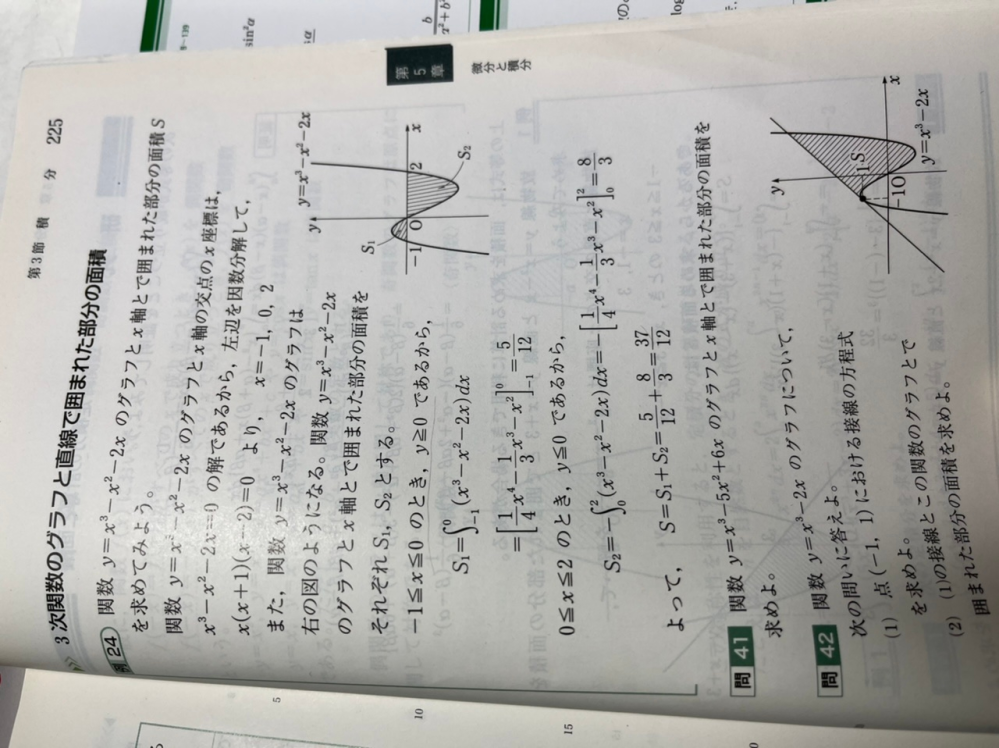 第3節 積 分 225
3次関数のグラフと直線で囲まれた部分の面積
例 24 関数 y=x³-x²-2x のグラフとx軸とで囲まれた部分の面積S
を求めてみよう。
関数 y=x³-x²-2x のグラフとx軸の交点のx座標は,
x³-x²-2x=0 の解であるから, 左辺を因数分解して,
x(x+1)(x-2)=0 より, x=-1, 0, 2
また, 関数 y=x³-x²-2x のグラフは
右の図のようになる。関数 y=x³-x²-2x
のグラフとx軸とで囲まれた部分の面積を
それぞれ S₁, S₂ とする。
y=x³-x²-2x
y
S₁
-1
0
2
x
S₂
-1≦x≦0 のとき, y≧0 であるから,
S₁=∫₋₁⁰(x³-x²-2x)dx
=[1/4x⁴-1/3x³-x²]₋₁⁰=5/12
0≦x≦2 のとき, y≦0 であるから,
S₂=-∫₀²(x³-x²-2x)dx=-[1/4x⁴-1/3x³-x²]₀²=8/3
よって, S=S₁+S₂=5/12+8/3=37/12
問 41 関数 y=x³-5x²+6x のグラフとx軸とで囲まれた部分の面積を
求めよ。
問 42 関数 y=x³-2x のグラフについて,
次の問いに答えよ。
(1) 点(-1, 1)における接線の方程式
を求めよ。
(2) (1)の接線とこの関数のグラフとで
囲まれた部分の面積を求めよ。
y
1
S
-1
0
x
y=x³-2x
第
5
章
微分と積分
5
10
15
sin²α